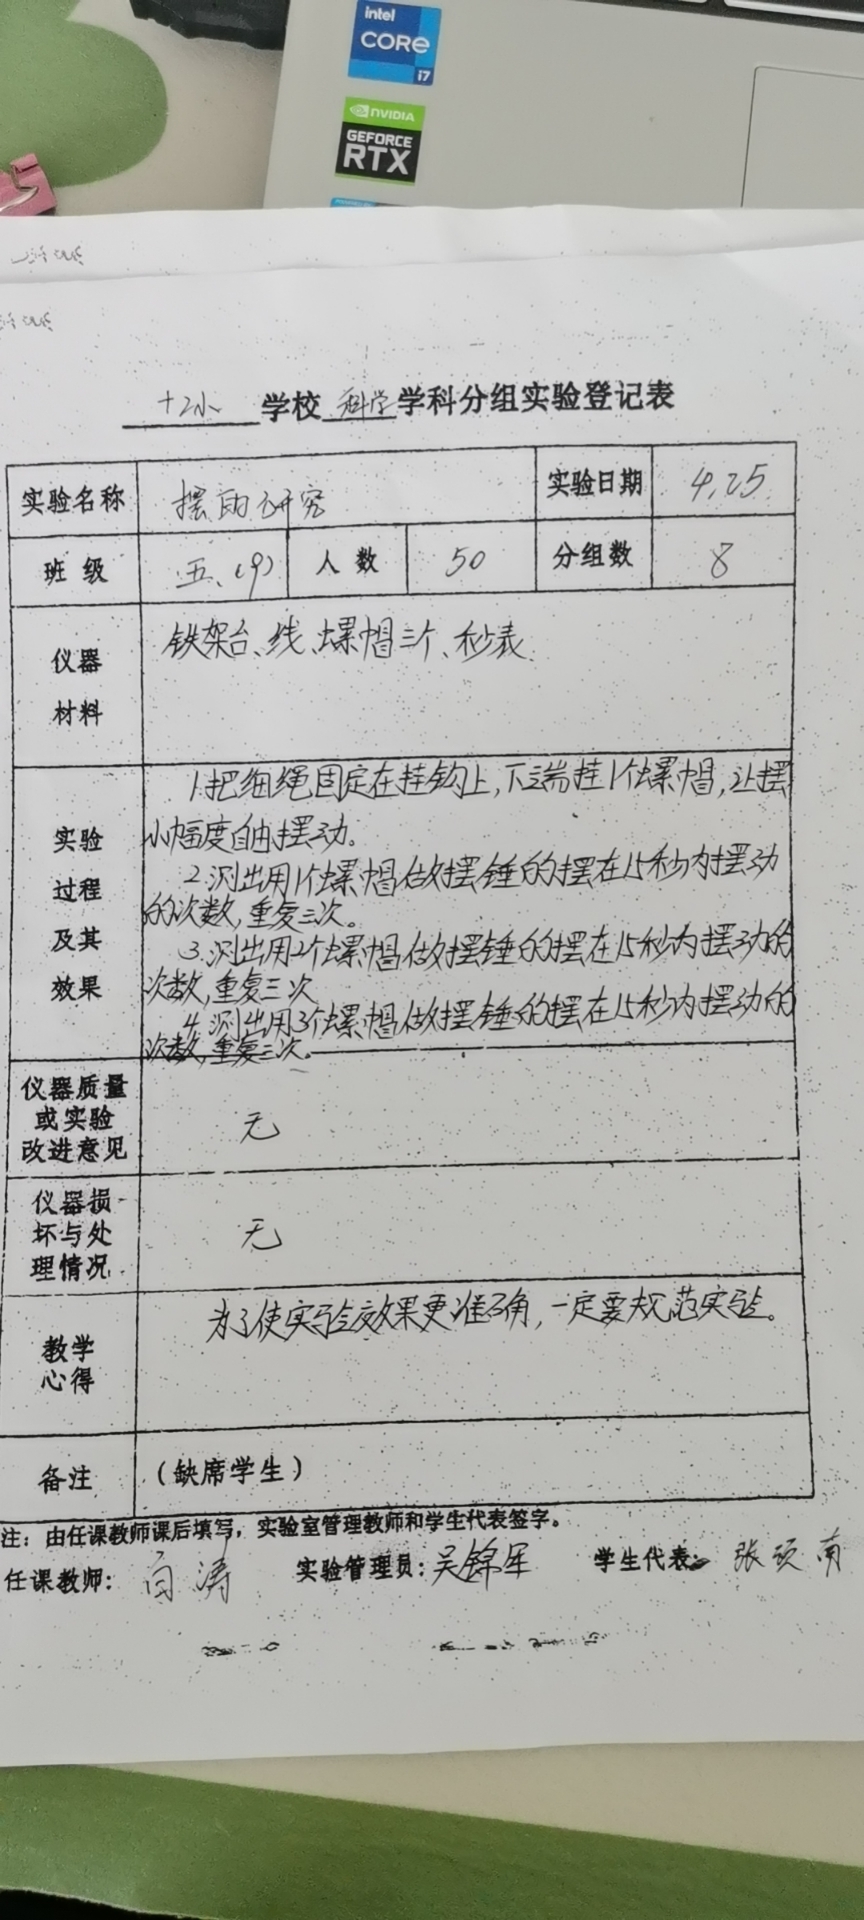 intel
CORe
i7
NVIDIA
GEFORCE
RTX
十2小 学校 科学 学科分组实验登记表
实验名称 摆的研究 实验日期 4.25
班级 五.(9) 人数 50 分组数 8
仪器
材料
铁架台、线、螺帽三个、秒表.
实验
过程
及其
效果
1.把细绳固定在挂钩上,下端挂1个螺帽,让摆
小幅度自由摆动。
2.测出用1个螺帽做摆锤的摆在15秒内摆动
的次数,重复三次。
3.测出用2个螺帽做摆锤的摆在15秒内摆动的
次数,重复三次
4.测出用3个螺帽做摆锤的摆在15秒内摆动的
次数,重复三次。
仪器质量
或实验
改进意见
无
仪器损
坏与处
理情况
无
教学
心得
为了使实验效果更准确,一定要规范实验。
备注 (缺席学生)
注:由任课教师课后填写,实验室管理教师和学生代表签字。
任课教师: 白涛 实验管理员: 吴锦军 学生代表: 张 南